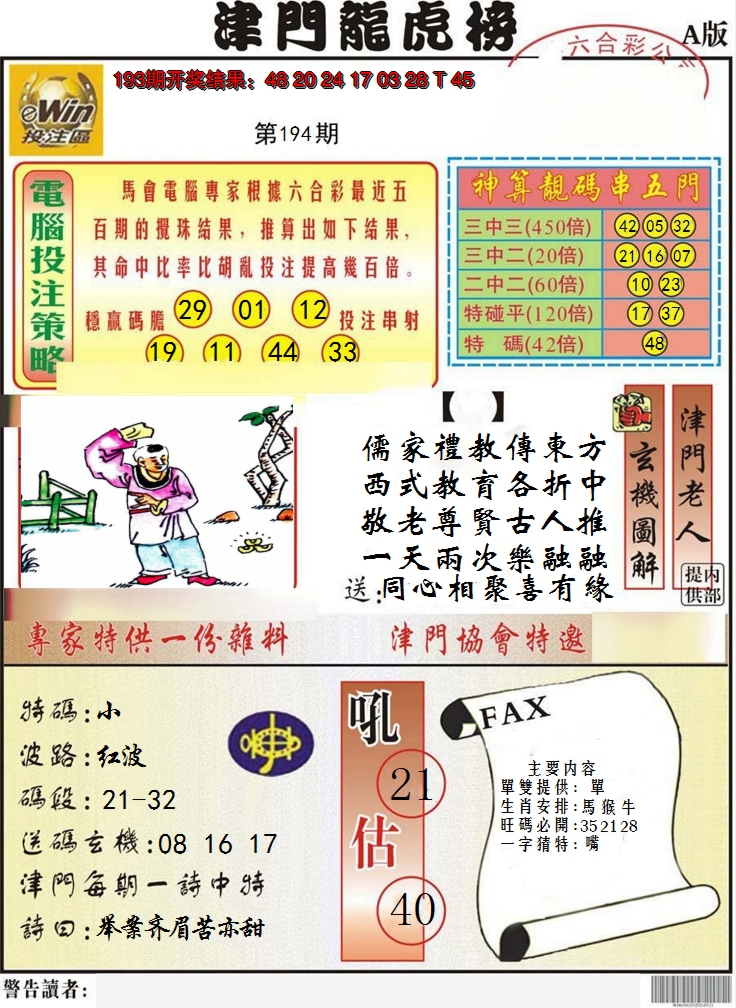 津門龍虎榜
A版
六合彩公
193期开奖结果：48 20 24 17 03 28 T 45
eWin
投注區
第194期
電腦投注策略
馬會電腦專家根據六合彩最近五
百期的攪珠结果，推算出如下结果，
其命中比率比胡亂投注提高幾百倍。
穩贏碼膽 29 01 12 投注串射
19 11 44 33
神算靚碼串五門
三中三(450倍) 42 05 32
三中二(20倍) 21 16 07
二中二(60倍) 10 23
特碰平(120倍) 17 37
特 碼(42倍) 48
【 】
儒家禮教傳東方
西式教育各折中
敬老尊賢古人推
一天兩次樂融融
送:同心相聚喜有緣
玄機圖解
津門老人
内部提供
專家特供一份雜料
津門協會特邀
特碼:小
波路:红波
碼段:21-32
送碼玄機:08 16 17
津門每期一詩中特
詩曰:举案齐眉苦亦甜
吼
21
估
40
FAX
主要内容
單雙提供：單
生肖安排:馬猴牛
旺碼必開:352128
一字猜特：嘴
警告讀者：